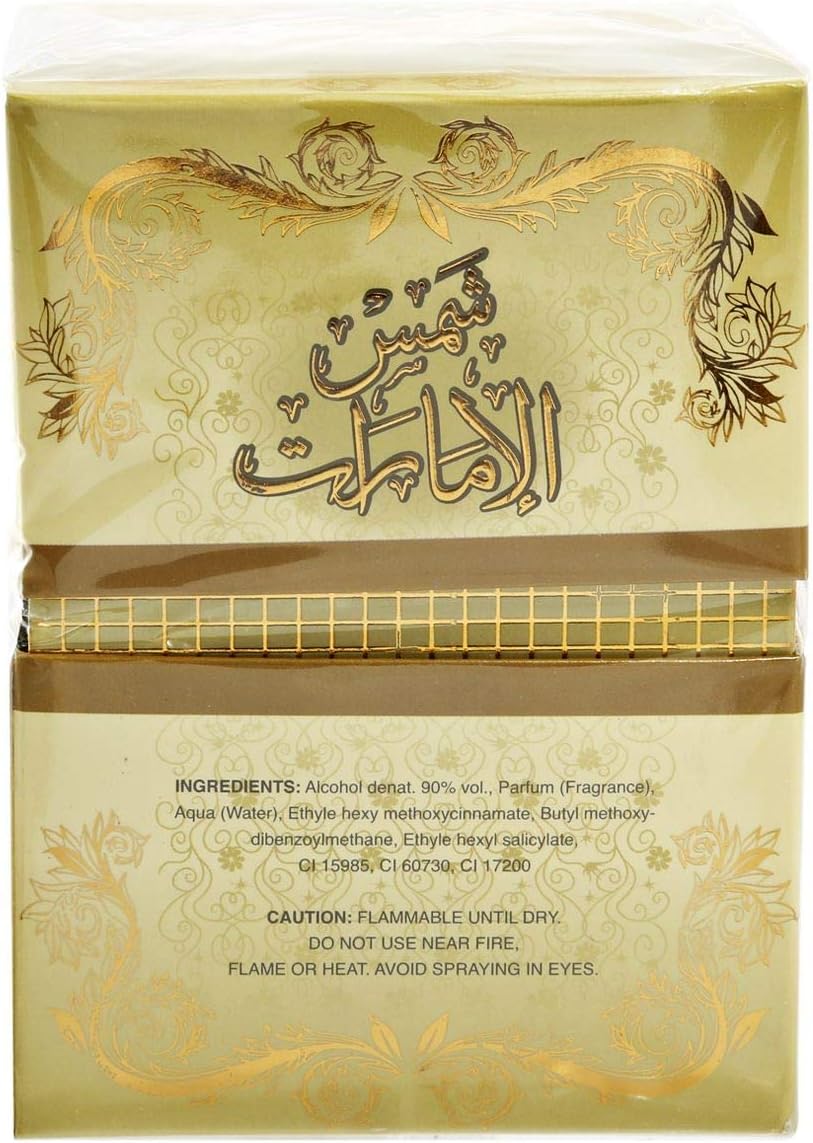 شمس
الإمارات
INGREDIENTS: Alcohol denat. 90% vol., Parfum (Fragrance),
Aqua (Water), Ethyle hexy methoxycinnamate, Butyl methoxy-
dibenzoylmethane, Ethyle hexyl salicylate,
CI 15985, CI 60730, CI 17200
CAUTION: FLAMMABLE UNTIL DRY.
DO NOT USE NEAR FIRE,
FLAME OR HEAT. AVOID SPRAYING IN EYES.